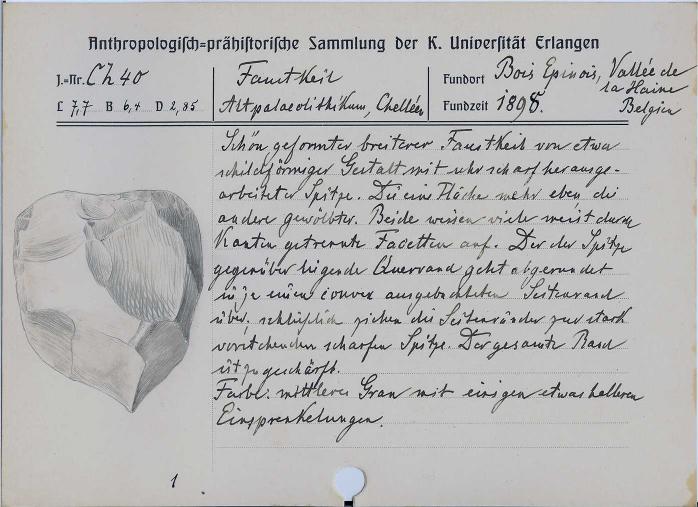 Anthropologisch=prähistorische Sammlung der K. Universität Erlangen
J.=Nr. Ch 40
L 7,7 B 6,4 D 2,85
Faustkeil
Altpalaeolithikum, Chelléen
Fundort Bois Epinois, Vallée de
la Haine
Belgien
Fundzeit 1898.
Schön geformter breiterer Faustkeil von etwa
schildförmiger Gestalt mit sehr scharf herausge-
arbeiteter Spitze. Die eine Fläche mehr eben, die
andere gewölbter. Beide weisen viele meist durch
Kanten getrennte Facetten auf. Der der Spitze
gegenüber liegende Querrand geht abgerundet
in je einen convex ausgebuchteten Seitenrand
über. schließlich ziehen die Seitenränder zur stark
vorstehenden scharfen Spitze. Der gesamte Rand
ist zugeschärft.
Farbe: mittleres Grau mit einigen etwas helleren
Einsprenkelungen.
1